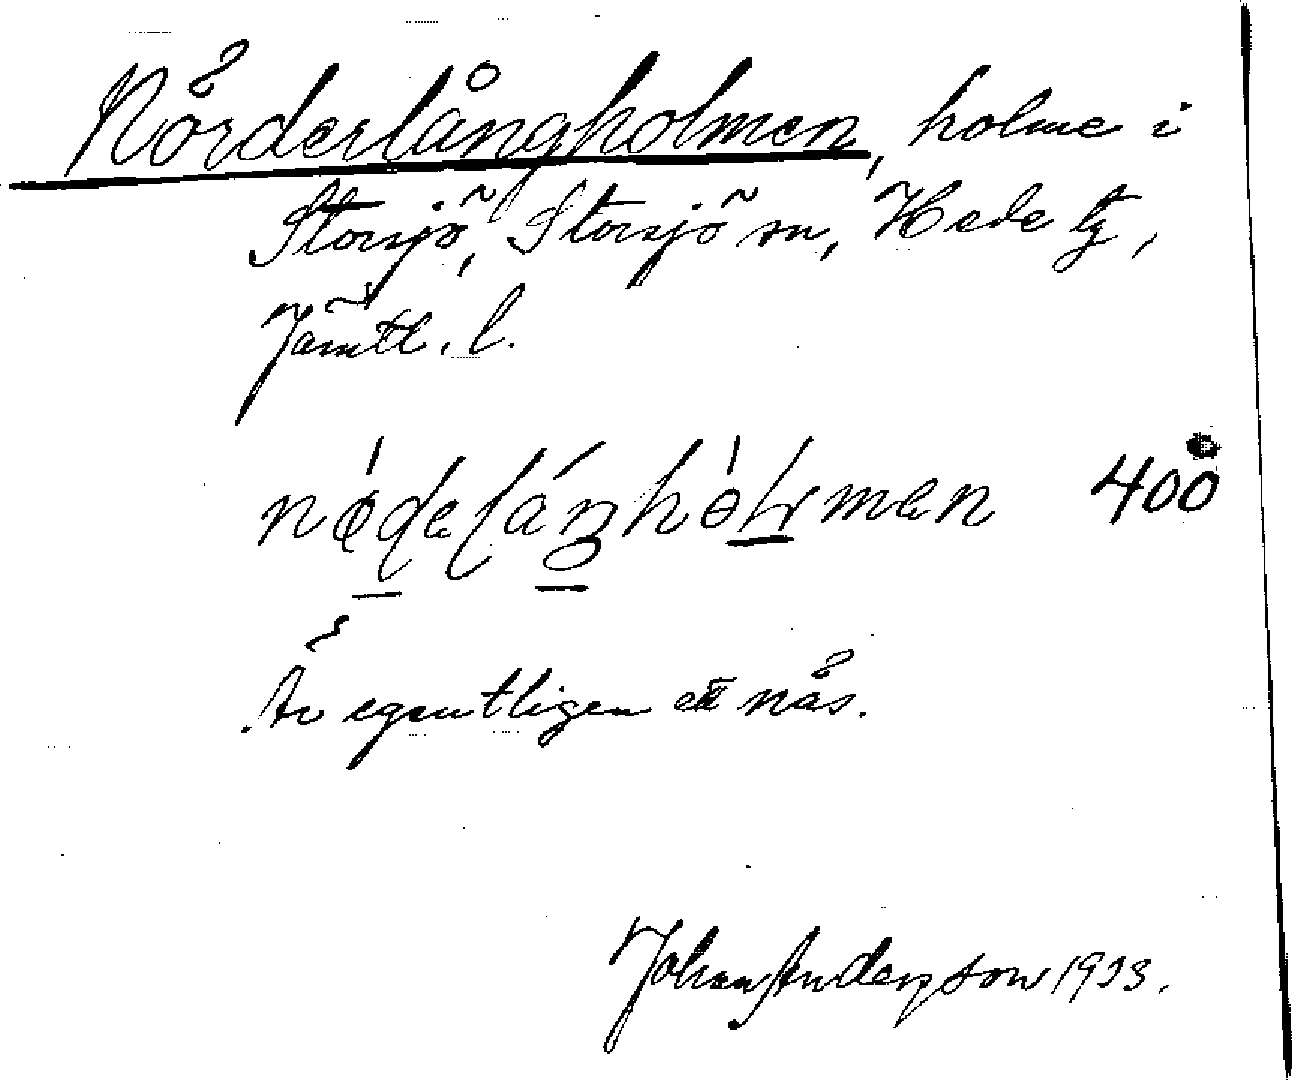 Nårderlångholmen, holme i
Storsjö, Storsjö sn, Hede tg,
Jämtl. l.
400
Är egentligen ett nås.
Johan Anderson 1933.